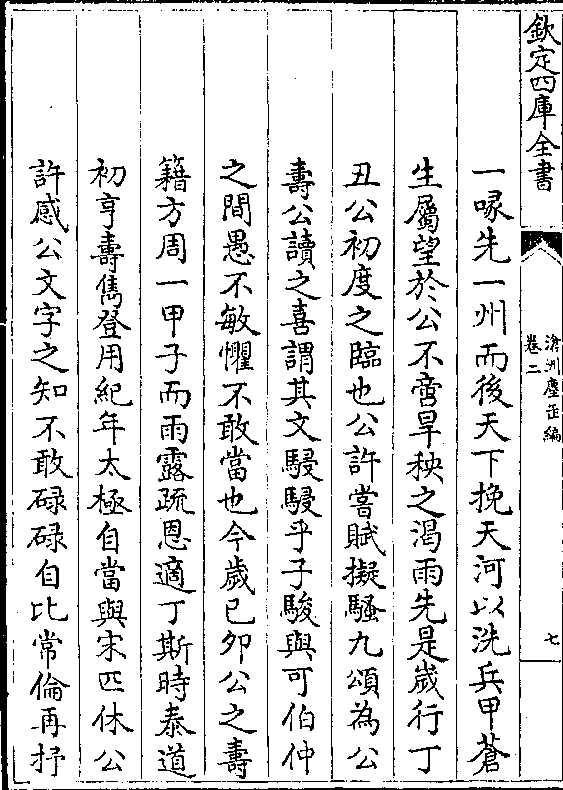 欽定四庫全書
滄洲塵缶編
卷二
七
一喙先一州而後天下挽天河以洗兵甲蒼
生屬望於公不啻旱秧之渴雨先是嵗行丁
丑公初度之臨也公許嘗賦擬騷九頌為公
壽公讀之喜謂其文駸駸乎子駿與可伯仲
之間愚不敏懼不敢當也今嵗已夘公之壽
籍方周一甲子而雨露疏恩適丁斯時泰道
初亨壽雋登用紀年太極自當與宋匹休公
許感公文字之知不敢碌碌自比常倫再抒